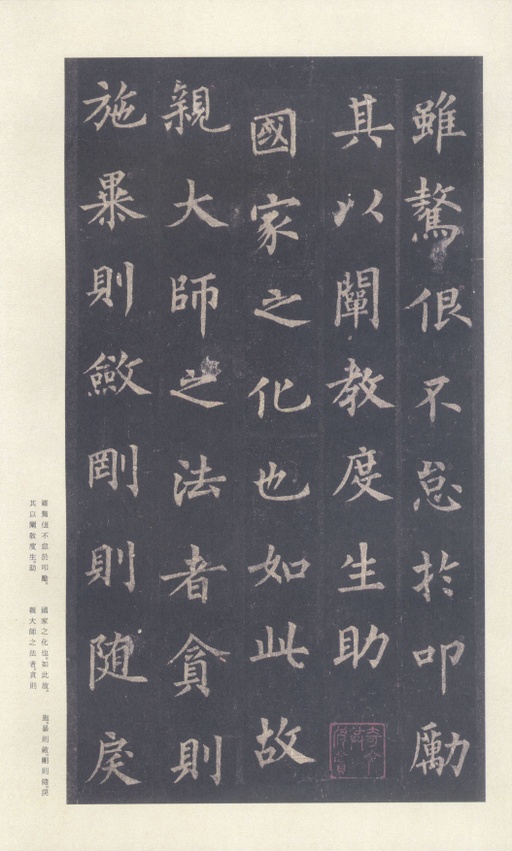 雖鷔佷不怠於叩勵
其以闡教度生助
國家之化也如此故
親大師之法者貪則
施暴則斂剛則隨戾
雖鷔佷不怠於叩勵。
其以闡教度生。助
國家之化也。如此故。
親大師之法者。貪則
施。暴則斂。剛則隨。戾